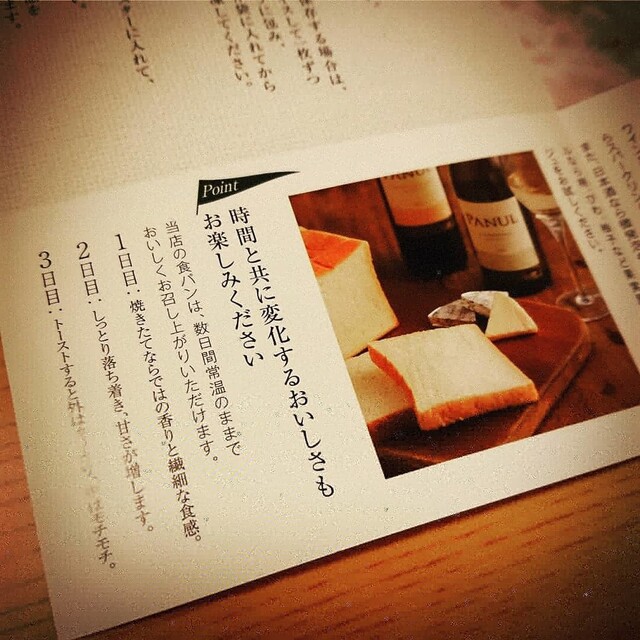 存する場合は、
スして一枚ずつ
に包み、
袋に入れてから
凍してください。
ターに入れて、
ます。
Point
時間と共に変化するおいしさも
お楽しみください
当店の食パンは、数日間常温のままで
おいしくお召し上がりいただけます。
1日目：焼きたてならではの香りと繊細な食感。
2日目：しっとり落ち着き、甘さが増します。
3日目：トーストすると外は
はモチモチ。
PANUL
PANUL
また、日本酒なら
お試しください。